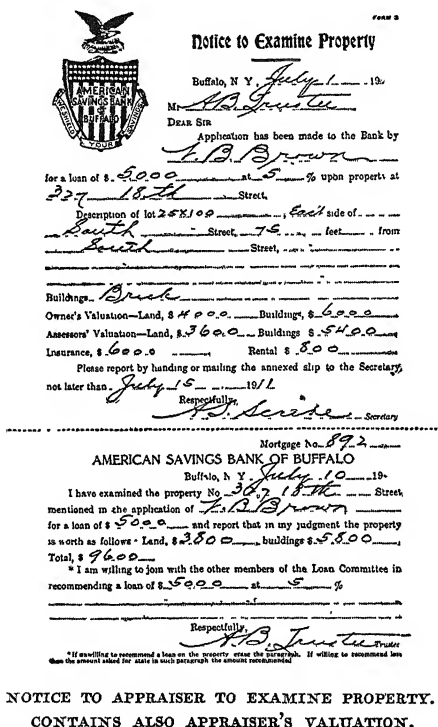 FORM 3
Notice to Examine Property
AMERICAN
SAVINGS BANK
OF
BUFFALO
WE SHIELD YOUR SAVINGS
Buffalo, N Y, July 1 19
Mr A B Trustee
DEAR SIR
Application has been made to the Bank by
F. B. Brown
for a loan of $ 5000 at 5 % upon property at
327 18th Street,
Description of lot 25X100, East side of
South Street, 75 feet from
South Street,
Buildings Brick
Owner's Valuation—Land, $ 4000 Buildings, $ 6000
Assessors' Valuation—Land, $ 3600 Buildings $ 5400
Insurance, $ 6000 Rental $ 800
Please report by handing or mailing the annexed slip to the Secretary,
not later than July 15 1911
Respectfully,
A B. Scribe Secretary
Mortgage No. 892
AMERICAN SAVINGS BANK OF BUFFALO
Buffalo, N Y. July 10 19
I have examined the property No 18th Street
mentioned in the application of F. B. Brown
for a loan of $ 5000 and report that in my judgment the property
is worth as follows - Land, $ 3800, buildings $ 5800
Total, $ 9600
* I am willing to join with the other members of the Loan Committee in
recommending a loan of $ 5000 at 5 %
Respectfully,
A B. Trustee Trustee
*If unwilling to recommend a loan on the property erase the paragraph. If willing to recommend less
than the amount asked for state in such paragraph the amount recommended
NOTICE TO APPRAISER TO EXAMINE PROPERTY.
CONTAINS ALSO APPRAISER'S VALUATION.